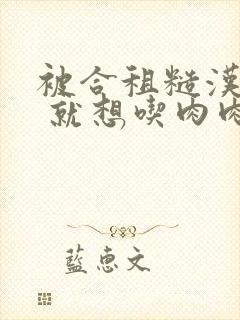 被合租糙漢
就想喫肉肉
藍惠文